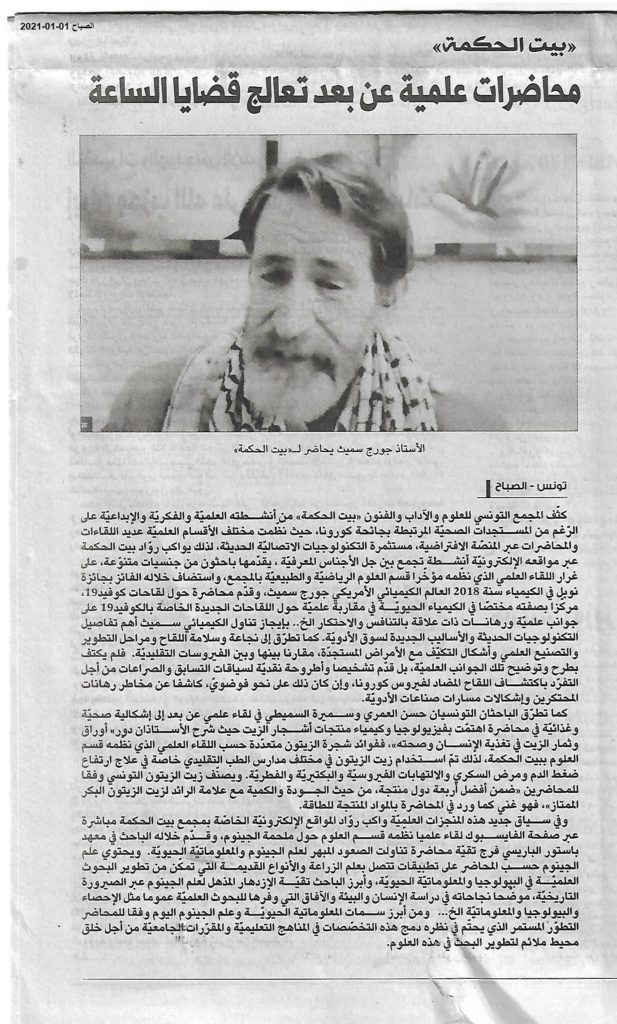 الصباح 01-01-2021
«بيت الحكمة»
محاضرات علمية عن بعد تعالج قضايا الساعة
الأستاذ جورج سميث يحاضر لـ«بيت الحكمة»
تونس - الصباح
كثّف المجمع التونسي للعلوم والآداب والفنون «بيت الحكمة» من أنشطته العلميّة والفكريّة والإبداعيّة على
الرّغم من المستجدات الصحيّة المرتبطة بجائحة كورونا، حيث نظّمت مختلف الأقسام العلميّة عديد اللقاءات
والمحاضرات عبر المنصّة الافتراضية، مستثمرة التكنولوجيات الاتصاليّة الحديثة، لذلك يواكب روّاد بيت الحكمة
عبر مواقعه الإلكترونيّة أنشطة تجمع بين جل الأجناس المعرفيّة ، يقدّمها باحثون من جنسيات متنوّعة، على
غرار اللقاء العلمي الذي نظمه مؤخّرا قسم العلوم الرياضيّة والطبيعيّة بالمجمع، واستضاف خلاله الفائز بجائزة
نوبل في الكيمياء سنة 2018 العالم الكيميائي الأمريكي جورج سميث، وقدّم محاضرة حول لقاحات كوفيد19،
مركزا بصفته مختصّا في الكيمياء الحيويّة في مقاربة علميّة حول اللقاحات الجديدة الخاصّة بالكوفيد19 على
جوانب علميّة ورهانات ذات علاقة بالتنافس والاحتكار الخ.. بإيجاز تناول الكيميائي سميث أهم تفاصيل
التكنولوجيات الحديثة والأساليب الجديدة لسوق الأدويّة. كما تطرّق إلى نجاعة وسلامة اللقاح ومراحل التطوير
والتصنيع العلمي وأشكال التكيّف مع الأمراض المستجدّة، مقارنا بينها وبين الفيروسات التقليديّة. فلم يكتف
بطرح وتوضيح تلك الجوانب العلميّة، بل قدّم تشخيصا وأطروحة نقديّة لسياقات التسابق والصراعات من أجل
التفرّد باكتشاف اللقاح المضاد لفيروس كورونا، وإن كان ذلك على نحو فوضويّ، كاشفا عن مخاطر رهانات
المحتكرين وإشكالات مسارات صناعات الأدويّة.
كما تطرّق الباحثان التونسيان حسن العمري وسميرة السميطي في لقاء علمي عن بعد إلى إشكالية صحيّة
وغذائيّة في محاضرة اهتمّت بفيزيولوجيا وكيمياء منتجات أشجار الزيت حيث شرح الأستاذان دور» أوراق
وثمار الزيت في تغذية الإنسان وصحته»، ففوائد شجرة الزيتون متعدّدة حسب اللقاء العلمي الذي نظمه قسم
العلوم ببيت الحكمة، لذلك تمّ استخدام زيت الزيتون في مختلف مدارس الطب التقليدي خاصة في علاج ارتفاع
ضغط الدم ومرض السكري والالتهابات الفيروسيّة والبكتيريّة والفطريّة. ويصنّف زيت الزيتون التونسي وفقا
للمحاضرين «ضمن أفضل أربعة دول منتجة، من حيث الجودة والكمية مع علامة الرائد لزيت الزيتون البكر
الممتاز»، فهو غني كما ورد في المحاضرة بالمواد المنتجة للطاقة.
وفي سياق جديد هذه المنجزات العلميّة واكب روّاد المواقع الإلكترونيّة الخاصّة بمجمع بيت الحكمة مباشرة
عبر صفحة الفايسبوك لقاء علميا نظمه قسم العلوم حول ملحمة الجينوم، وقدّم خلاله الباحث في معهد
باستور الباريسي فرج تقيّة محاضرة تناولت الصعود المبهر لعلم الجينوم والمعلوماتيّة الحيويّة. ويحتوي علم
الجينوم حسب المحاضر على تطبيقات تتصل بعلم الزراعة والأنواع القديمة التي تمكّن من تطوير البحوث
العلميّة في البيولوجيا والمعلوماتيّة الحيويّة، وأبرز الباحث تقيّة الازدهار المذهل لعلم الجينوم عبر الصيرورة
التاريخيّة، موضحا نجاحاته في دراسة الإنسان والبيئة والآفاق التي وفرها للبحوث العلميّة عموما مثل الإحصاء
والبيولوجيا والمعلوماتيّة الخ... ومن أبرز سمات المعلوماتية الحيويّة وعلم الجينوم اليوم وفقا للمحاضر
التطوّر المستمر الذي يحتّم في نظره دمج هذه التخصّصات في المناهج التعليميّة والمقرّرات الجامعيّة من أجل خلق
محيط ملائم لتطوير البحث في هذه العلوم.